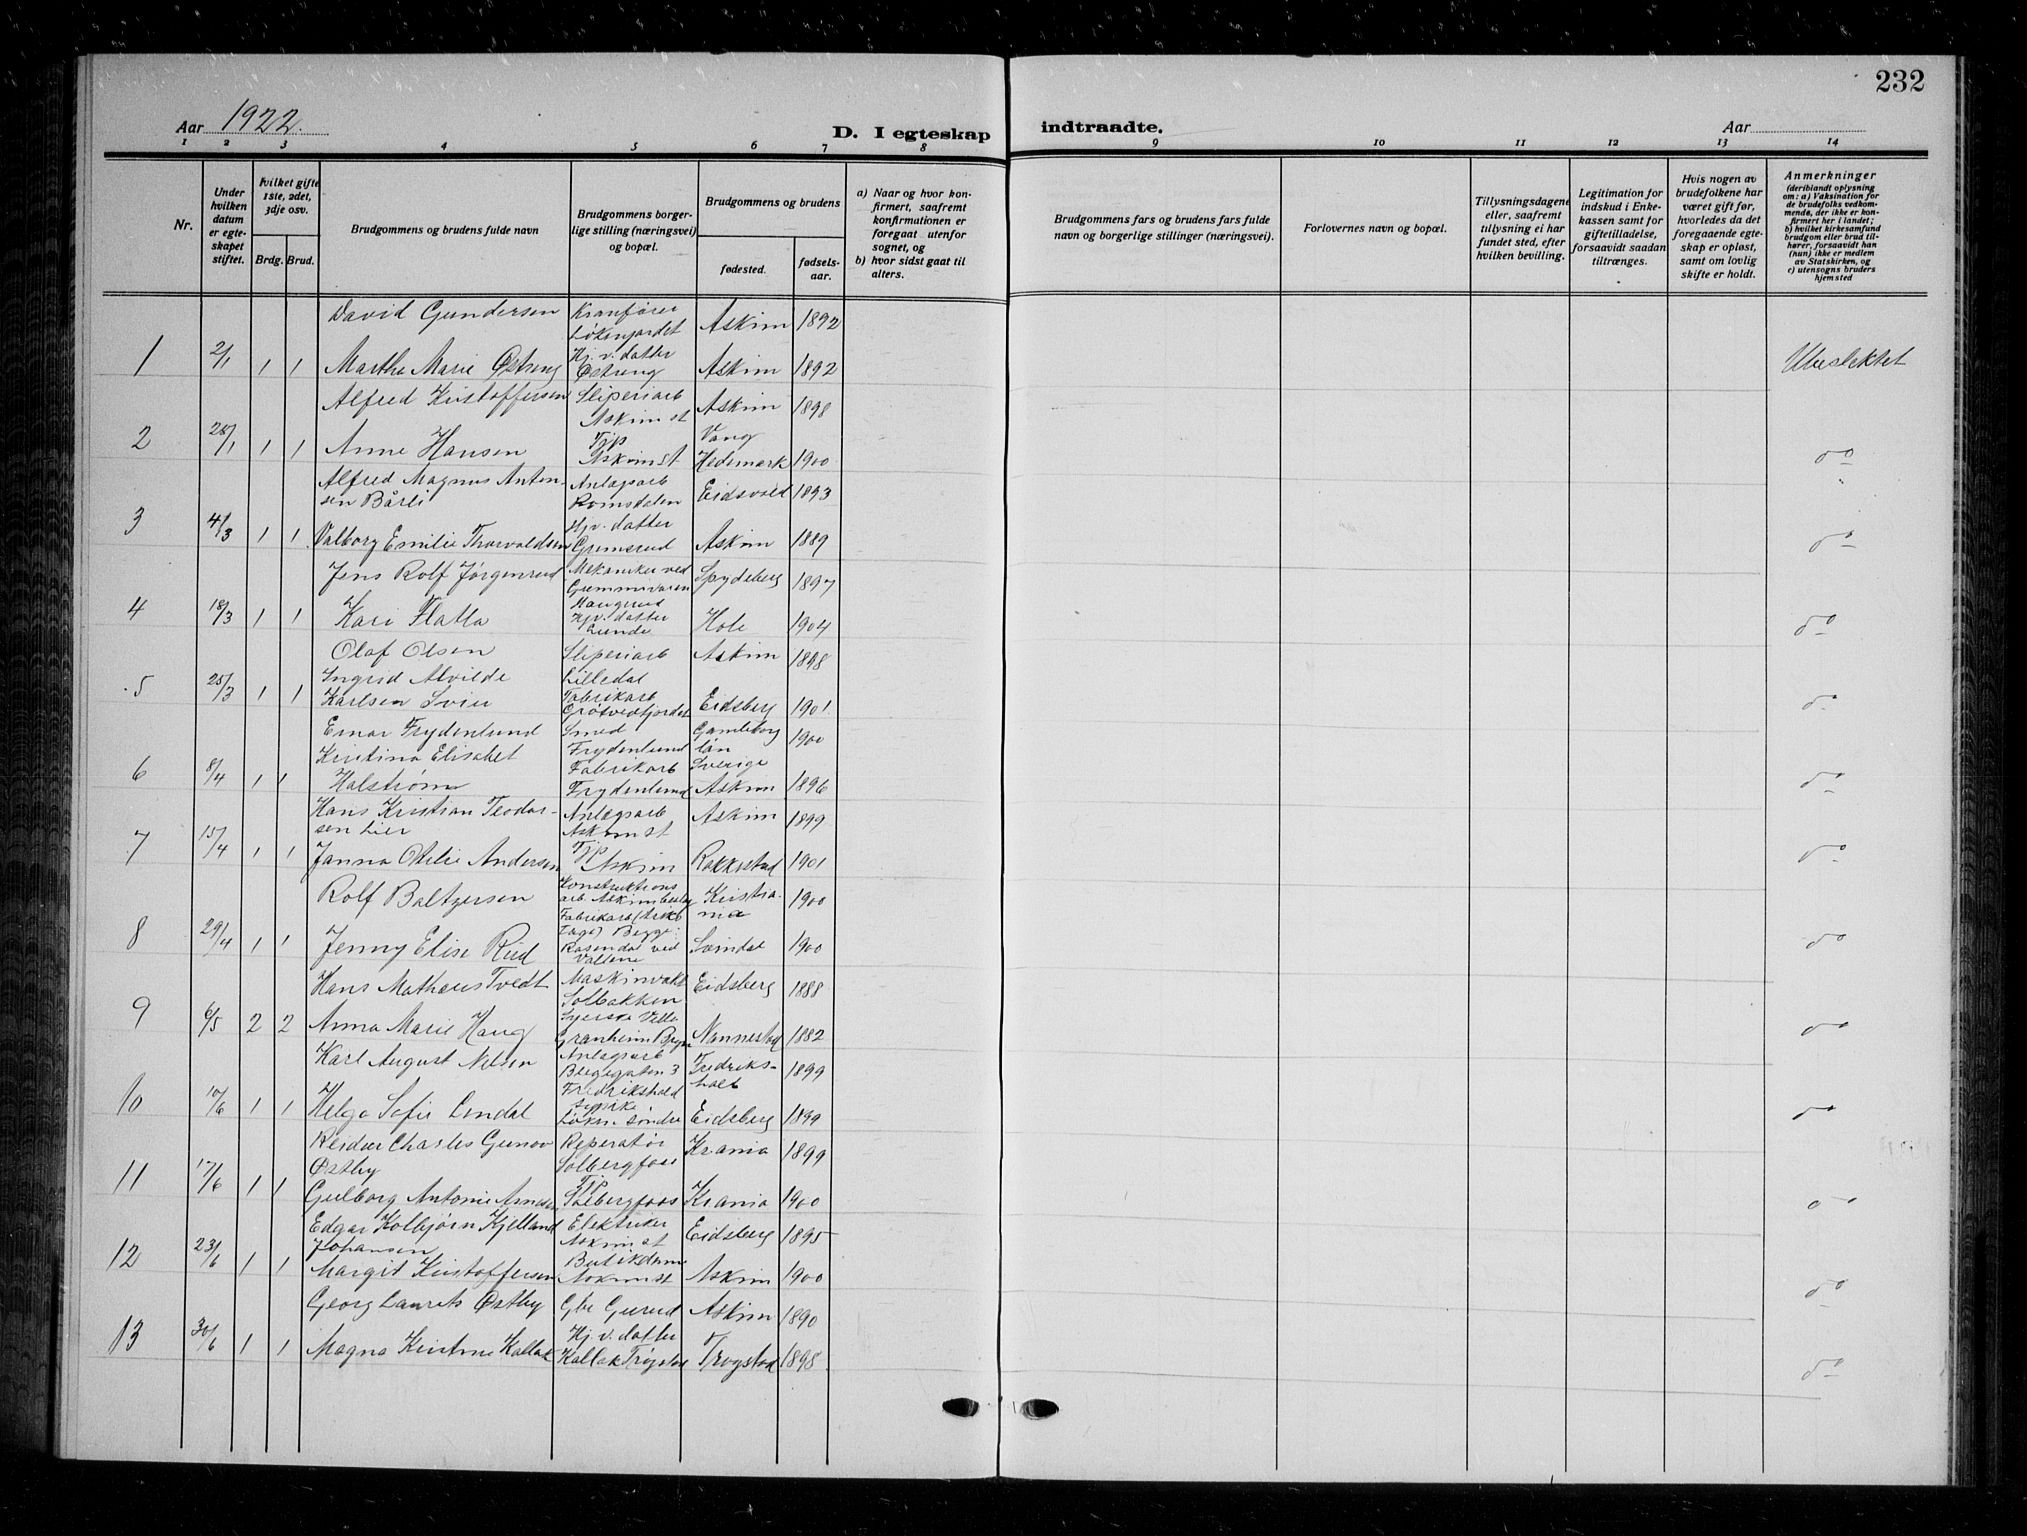 232
Aar 1922.
D. I egteskap indtraadte.
Aar
1 2 3 4 5 6 7 8 9 10 11 12 13 14
Nr.
Under hvilken datum er egteskapet stiftet.
Hvilket gifte 1ste, 2det, 3dje osv.
Brdg. Brud.
Brudgommens og brudens fulde navn
Brudgommens borgerlige stilling (næringsvei) og bopæl.
Brudgommens og brudens
fødested.
fødselsaar.
a) Naar og hvor konfirmert, saafremt konfirmationen er foregaat utenfor sognet, og
b) hvor sidst gaat til alters.
Brudgommens fars og brudens fars fulde navn og borgerlige stillinger (næringsvei).
Forlovernes navn og bopæl.
Tillysningsdagene eller, saafremt tillysning ei har fundet sted, efter hvilken bevilling.
Legitimation for indskud i Enkekassen samt for giftetilladelse, forsaavidt saadan tiltrænges.
Hvis nogen av brudefolkene har været gift før, hvorledes da det foregaaende egteskap er opløst, samt om lovlig skifte er holdt.
Anmerkninger
(deriblandt oplysning om: a) Vaksination for de brudefolks vedkommende, der ikke er konfirmert her i landet; b) hvilket kirkesamfund brudgom eller brud tilhører, forsaavidt han (hun) ikke er medlem av Statskirken, og c) utensogns bruders hjemsted
David Gundersen Kranfører Løkengordet Askim 1892
1 2/1 1 1 Martha Marie Østreng Hj. v. datter Østreng Askim 1892 Ubeslektet
Alfred Kristoffersen Sliperiarb Askim st Askim 1898
2 28/1 1 1 Anne Hansen Tjp Askim st Vang Hedemark 1900 do
Alfred Magnus Antonsen Bårli Anlægsarb Romsdalen Eidsvold 1893
3 4/3 1 1 Valborg Emilie Thorvaldsen Hjv. datter Grimsrud Askim 1889 do
Jens Rolf Jørgensrud Mekaniker ved Gummivaren Haugrud Spydeberg 1897
4 18/3 1 1 Kari Flatla Hjv. datter Lunde Hole 1904 do
Olaf Olsen Sliperiarb Lilledal Askim 1898
5 25/3 1 1 Ingrid Alvilde Karlsen Svier Fabrikarb Grøtvedtjordet Eidsberg 1901 do
Einar Frydenlund Smed Frydenlund Gamleborg län Sverige 1900
6 8/4 1 1 Kristina Elisabet Halstrøm Fabrikarb Frydenlund Askim 1896 do
Hans Kristian Teodorsen Lier Anlægsarb Askim st Askim 1899
7 15/4 1 1 Janna Otilie Andersen Tjp Askim Rakkestad 1901 do
Rolf Baltzersen Konstruktionsarb. Kristiania 1900
8 29/4 1 1 Jenny Elise Rud Fabrikarb Begge: Rosendal ved Svindal 1900 do
Hans Matheus Tvedt Maskinvakt Solbakken Eidsberg 1888
9 6/5 2 2 Anna Marie Haug Syerske Villa Granheim Nannestad 1882 do
Karl August Nilsen Anlægsarb Fredrikshald Fredrikshald 1899
10 10/6 1 1 Helga Sofie Lindal Løken søndre Eidsberg 1899 do
Reidar Charles Gunov Østby Reperatør Solbergfoss Krania 1899
11 17/6 1 1 Gulborg Antonie Arnesen Tjp Solbergfoss Krania 1900 do
Edgar Kolbjørn Kjelland Johansen Elektriker Askim st Eidsberg 1895
12 23/6 1 1 Margit Kristoffersen Butikdame Askim st Askim 1900 do
Georg Laurits Østby Gbr Gurud Askim 1890
13 30/6 1 1 Magna Kristine Kallak Hj. v. datter Kallak Trøgstad Trøgstad 1898 do